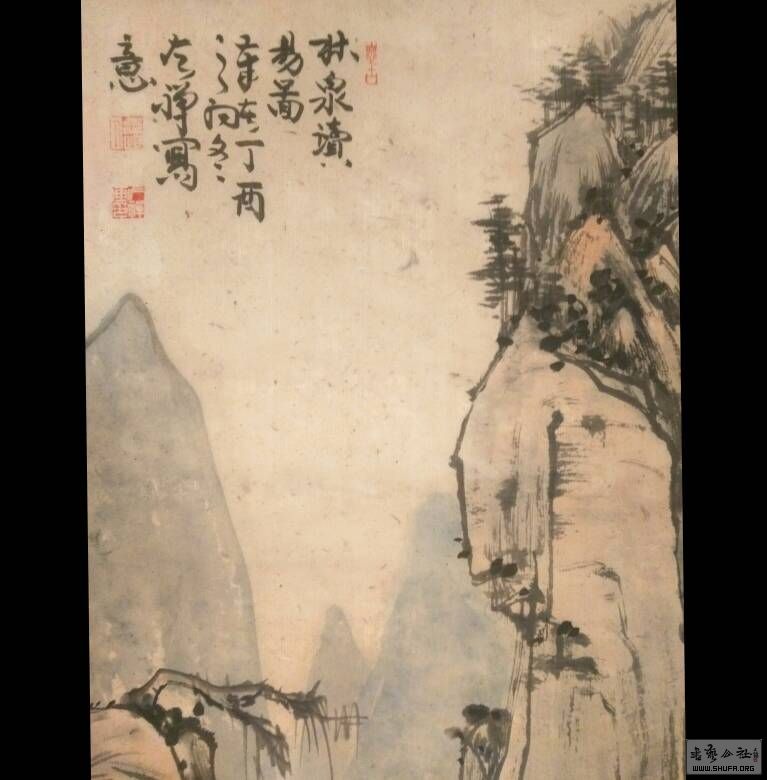 林泉讀
易圖
歲在丁酉
之初冬
寫
意
書法公社
WWW.SHUFA.ORG